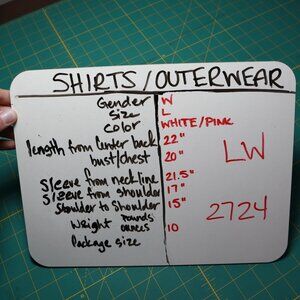 SHIRTS/OUTERWEAR
Gender W
Size L
Color WHITE/PINK
length from center back 22"
bust/chest 20"
Sleeve from neckline 21.5"
Sleeve from shoulder 17"
Shoulder to shoulder 15"
Weight pounds
ounces 10
Package size
LW
2724